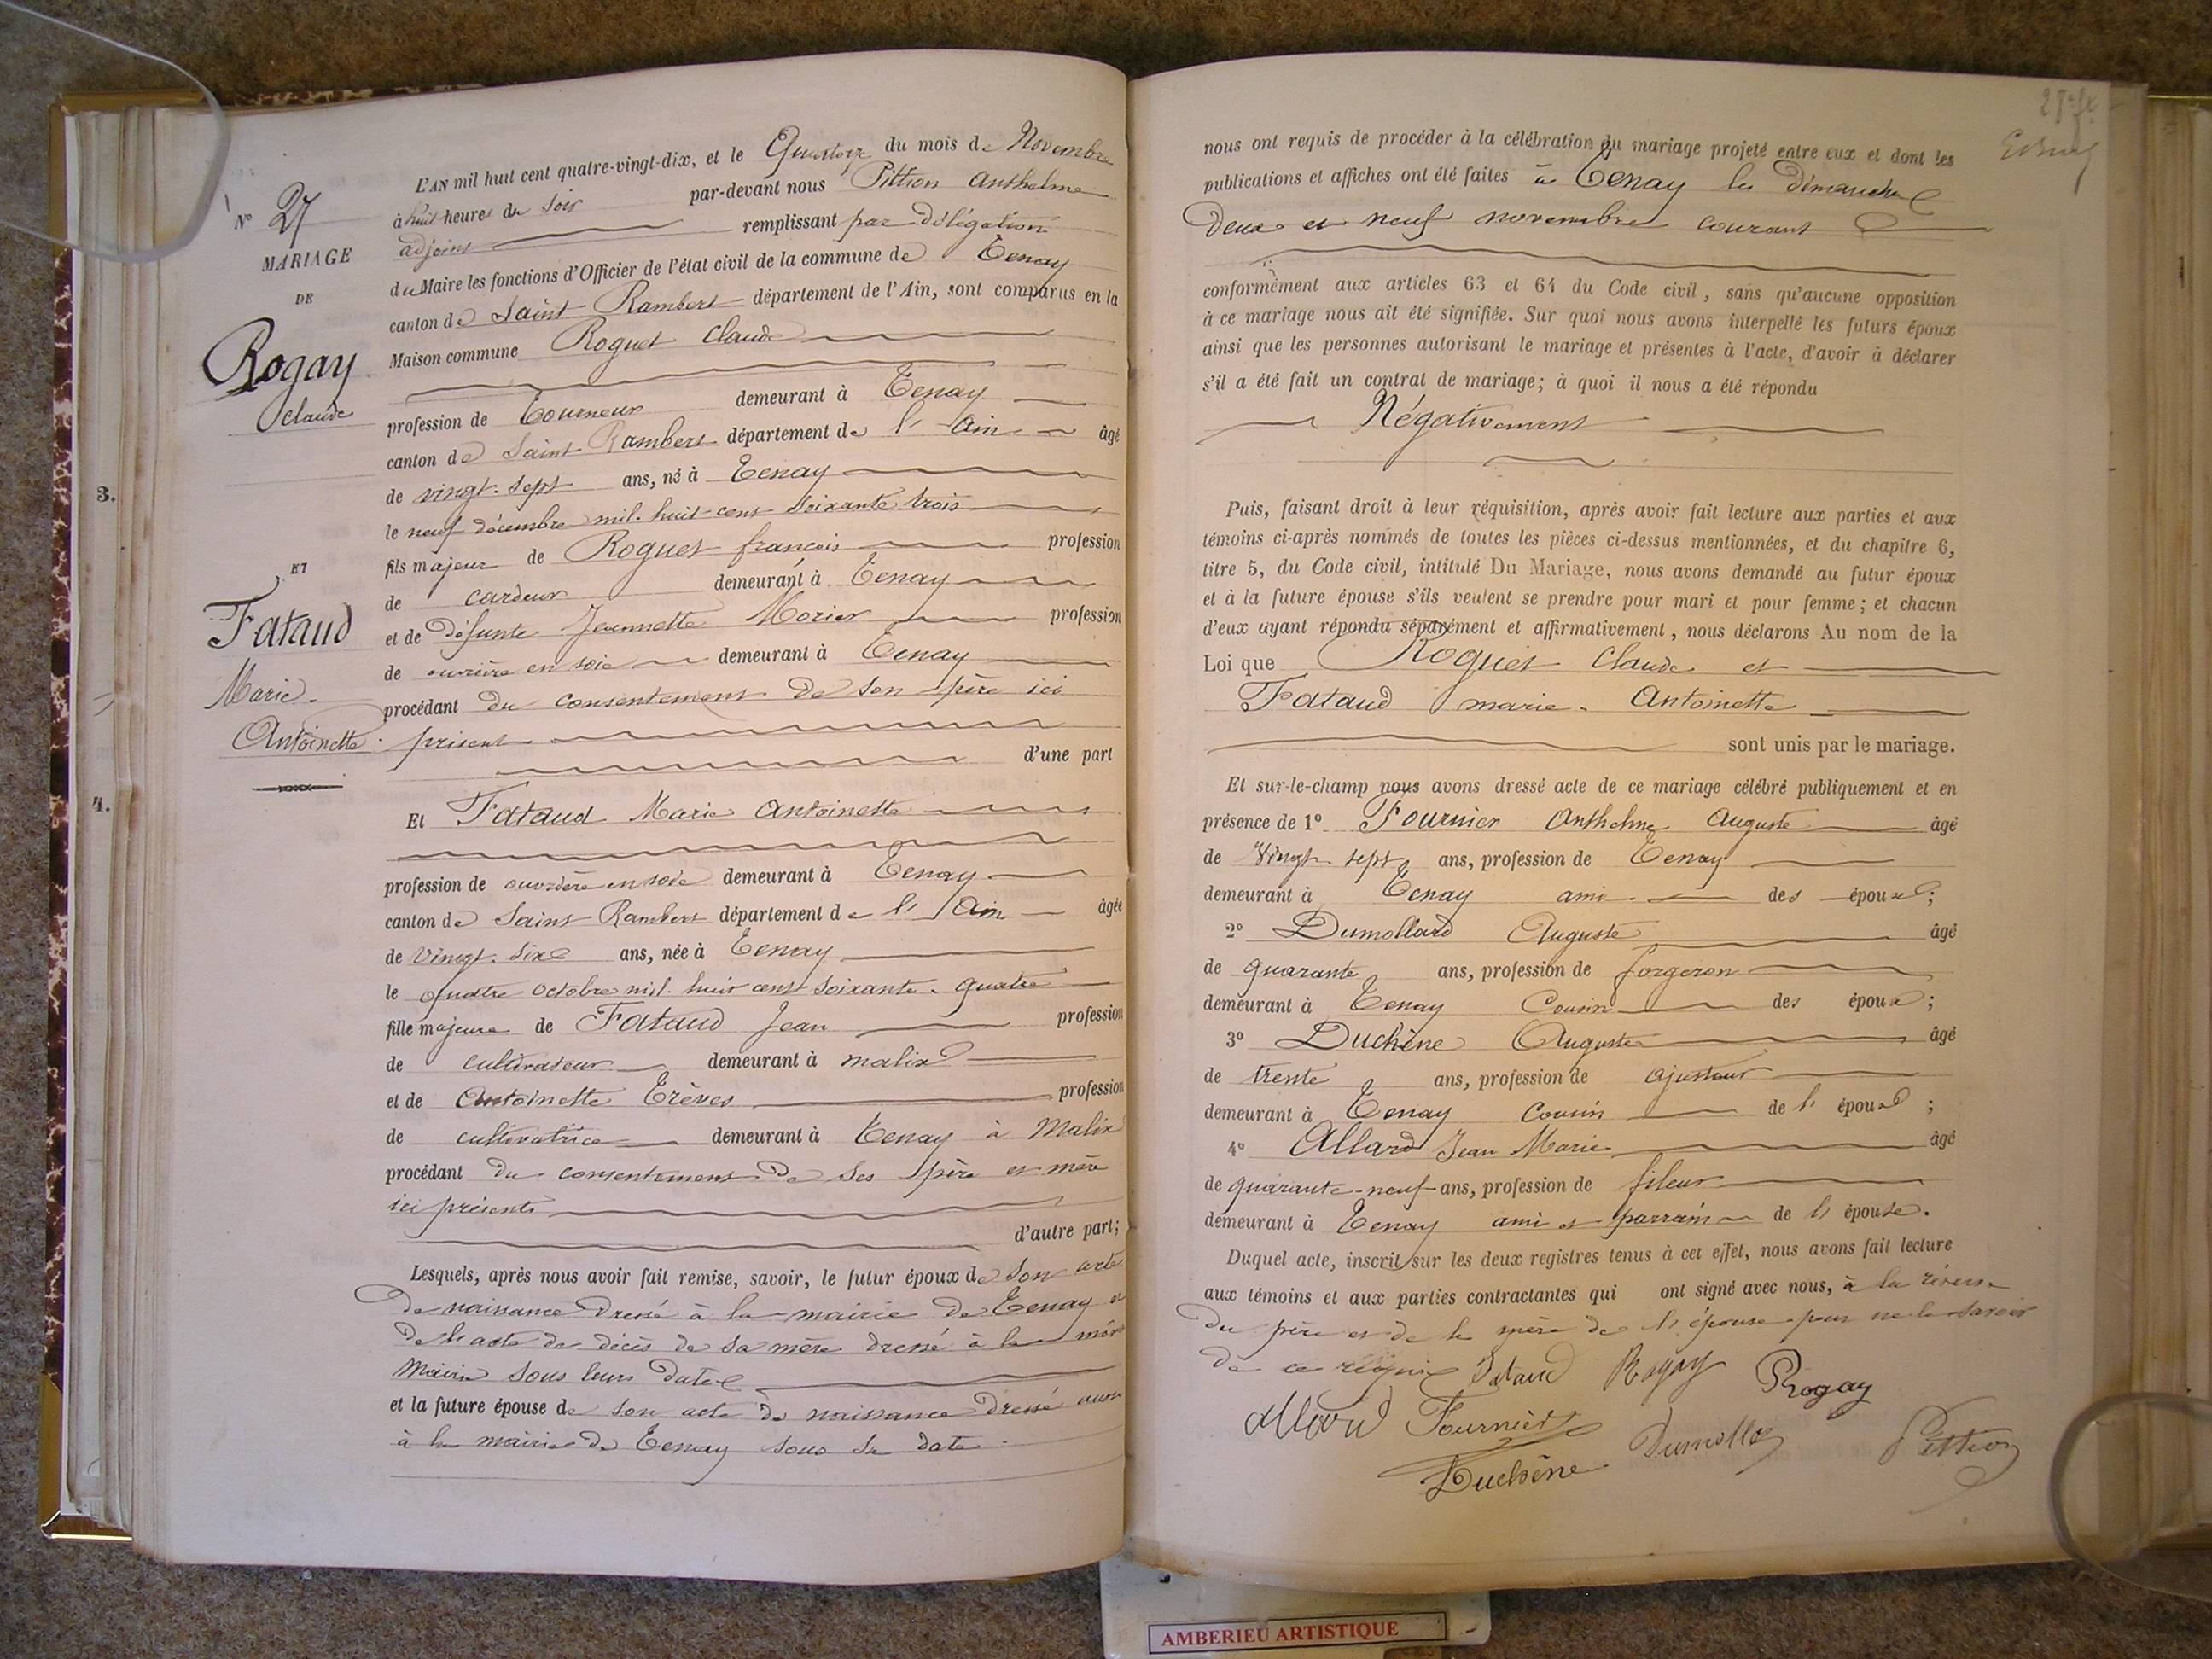 N° 27
MARIAGE
DE
Rogay
Claude
ET
Fataud
Marie-
Antoinette.
L'AN mil huit cent quatre-vingt-dix, et le Quatorze du mois de Novembre
à huit heures du soir par-devant nous Pittion Anthelme
adjoint remplissant par délégation
du Maire les fonctions d'Officier de l'état civil de la commune de Tenay
canton de Saint Rambert département de l'Ain, sont comparus en la
Maison commune Roguet Claude
profession de Tourneur demeurant à Tenay
canton de Saint Rambert département de l'Ain âgé
de vingt-sept ans, né à Tenay
le neuf décembre mil-huit-cent soixante trois
fils majeur de Roguet françois profession
de cardeur demeurant à Tenay
et de défunte Jeannette Morier profession
de ouvrière en soie demeurant à Tenay
procédant du consentement de son père ici
présent
d'une part
Et Fataud Marie Antoinette
profession de ouvrière en soie demeurant à Tenay
canton de Saint Rambert département de l'Ain âgée
de vingt-six ans, née à Tenay
le quatre octobre mil-huit cent soixante-quatre
fille majeure de Fataud Jean profession
de cultivateur demeurant à malix
et de Antoinette Trèves profession
de cultivatrice demeurant à Tenay à Malix
procédant du consentement de ses père et mère
ici présents
d'autre part;
Lesquels, après nous avoir fait remise, savoir, le futur époux de son acte
de naissance dressé à la mairie de Tenay et
de l'acte de décès de sa mère dressé à la même
Mairie sous leurs dates
et la future épouse de son acte de naissance dressé aussi
à la mairie de Tenay sous sa date.
nous ont requis de procéder à la célébration du mariage projeté entre eux et dont les
publications et affiches ont été faites à Tenay les dimanches
deux et neuf novembre courant
conformément aux articles 63 et 64 du Code civil, sans qu'aucune opposition
à ce mariage nous ait été signifiée. Sur quoi nous avons interpellé les futurs époux
ainsi que les personnes autorisant le mariage et présentes à l'acte, d'avoir à déclarer
s'il a été fait un contrat de mariage; à quoi il nous a été répondu
Négativement
Puis, faisant droit à leur réquisition, après avoir fait lecture aux parties et aux
témoins ci-après nommés de toutes les pièces ci-dessus mentionnées, et du chapitre 6,
titre 5, du Code civil, intitulé Du Mariage, nous avons demandé au futur époux
et à la future épouse s'ils veulent se prendre pour mari et pour femme; et chacun
d'eux ayant répondu séparément et affirmativement, nous déclarons Au nom de la
Loi que Roguet Claude et
Fataud marie-Antoinette
sont unis par le mariage.
Et sur-le-champ nous avons dressé acte de ce mariage célébré publiquement et en
présence de 1° Fournier Anthelme Auguste âgé
de Vingt-sept ans, profession de Tenay
demeurant à Tenay ami des époux;
2° Dumollard Auguste âgé
de quarante ans, profession de forgeron
demeurant à Tenay Cousin des époux;
3° Duchêne Auguste âgé
de trente ans, profession de ajusteur
demeurant à Tenay cousin de l'époux;
4° Allard Jean Marie âgé
de quarante-neuf ans, profession de fileur
demeurant à Tenay ami et parrain de l'épouse.
Duquel acte, inscrit sur les deux registres tenus à cet effet, nous avons fait lecture
aux témoins et aux parties contractantes qui ont signé avec nous, à la réserve
du père et de la mère de l'épouse pour ne le savoir
de ce requis Fataud Rogay Rogay
Allard Fournier Dumollard Pittion
Duchêne
3.
4.
AMBERIEU ARTISTIQUE